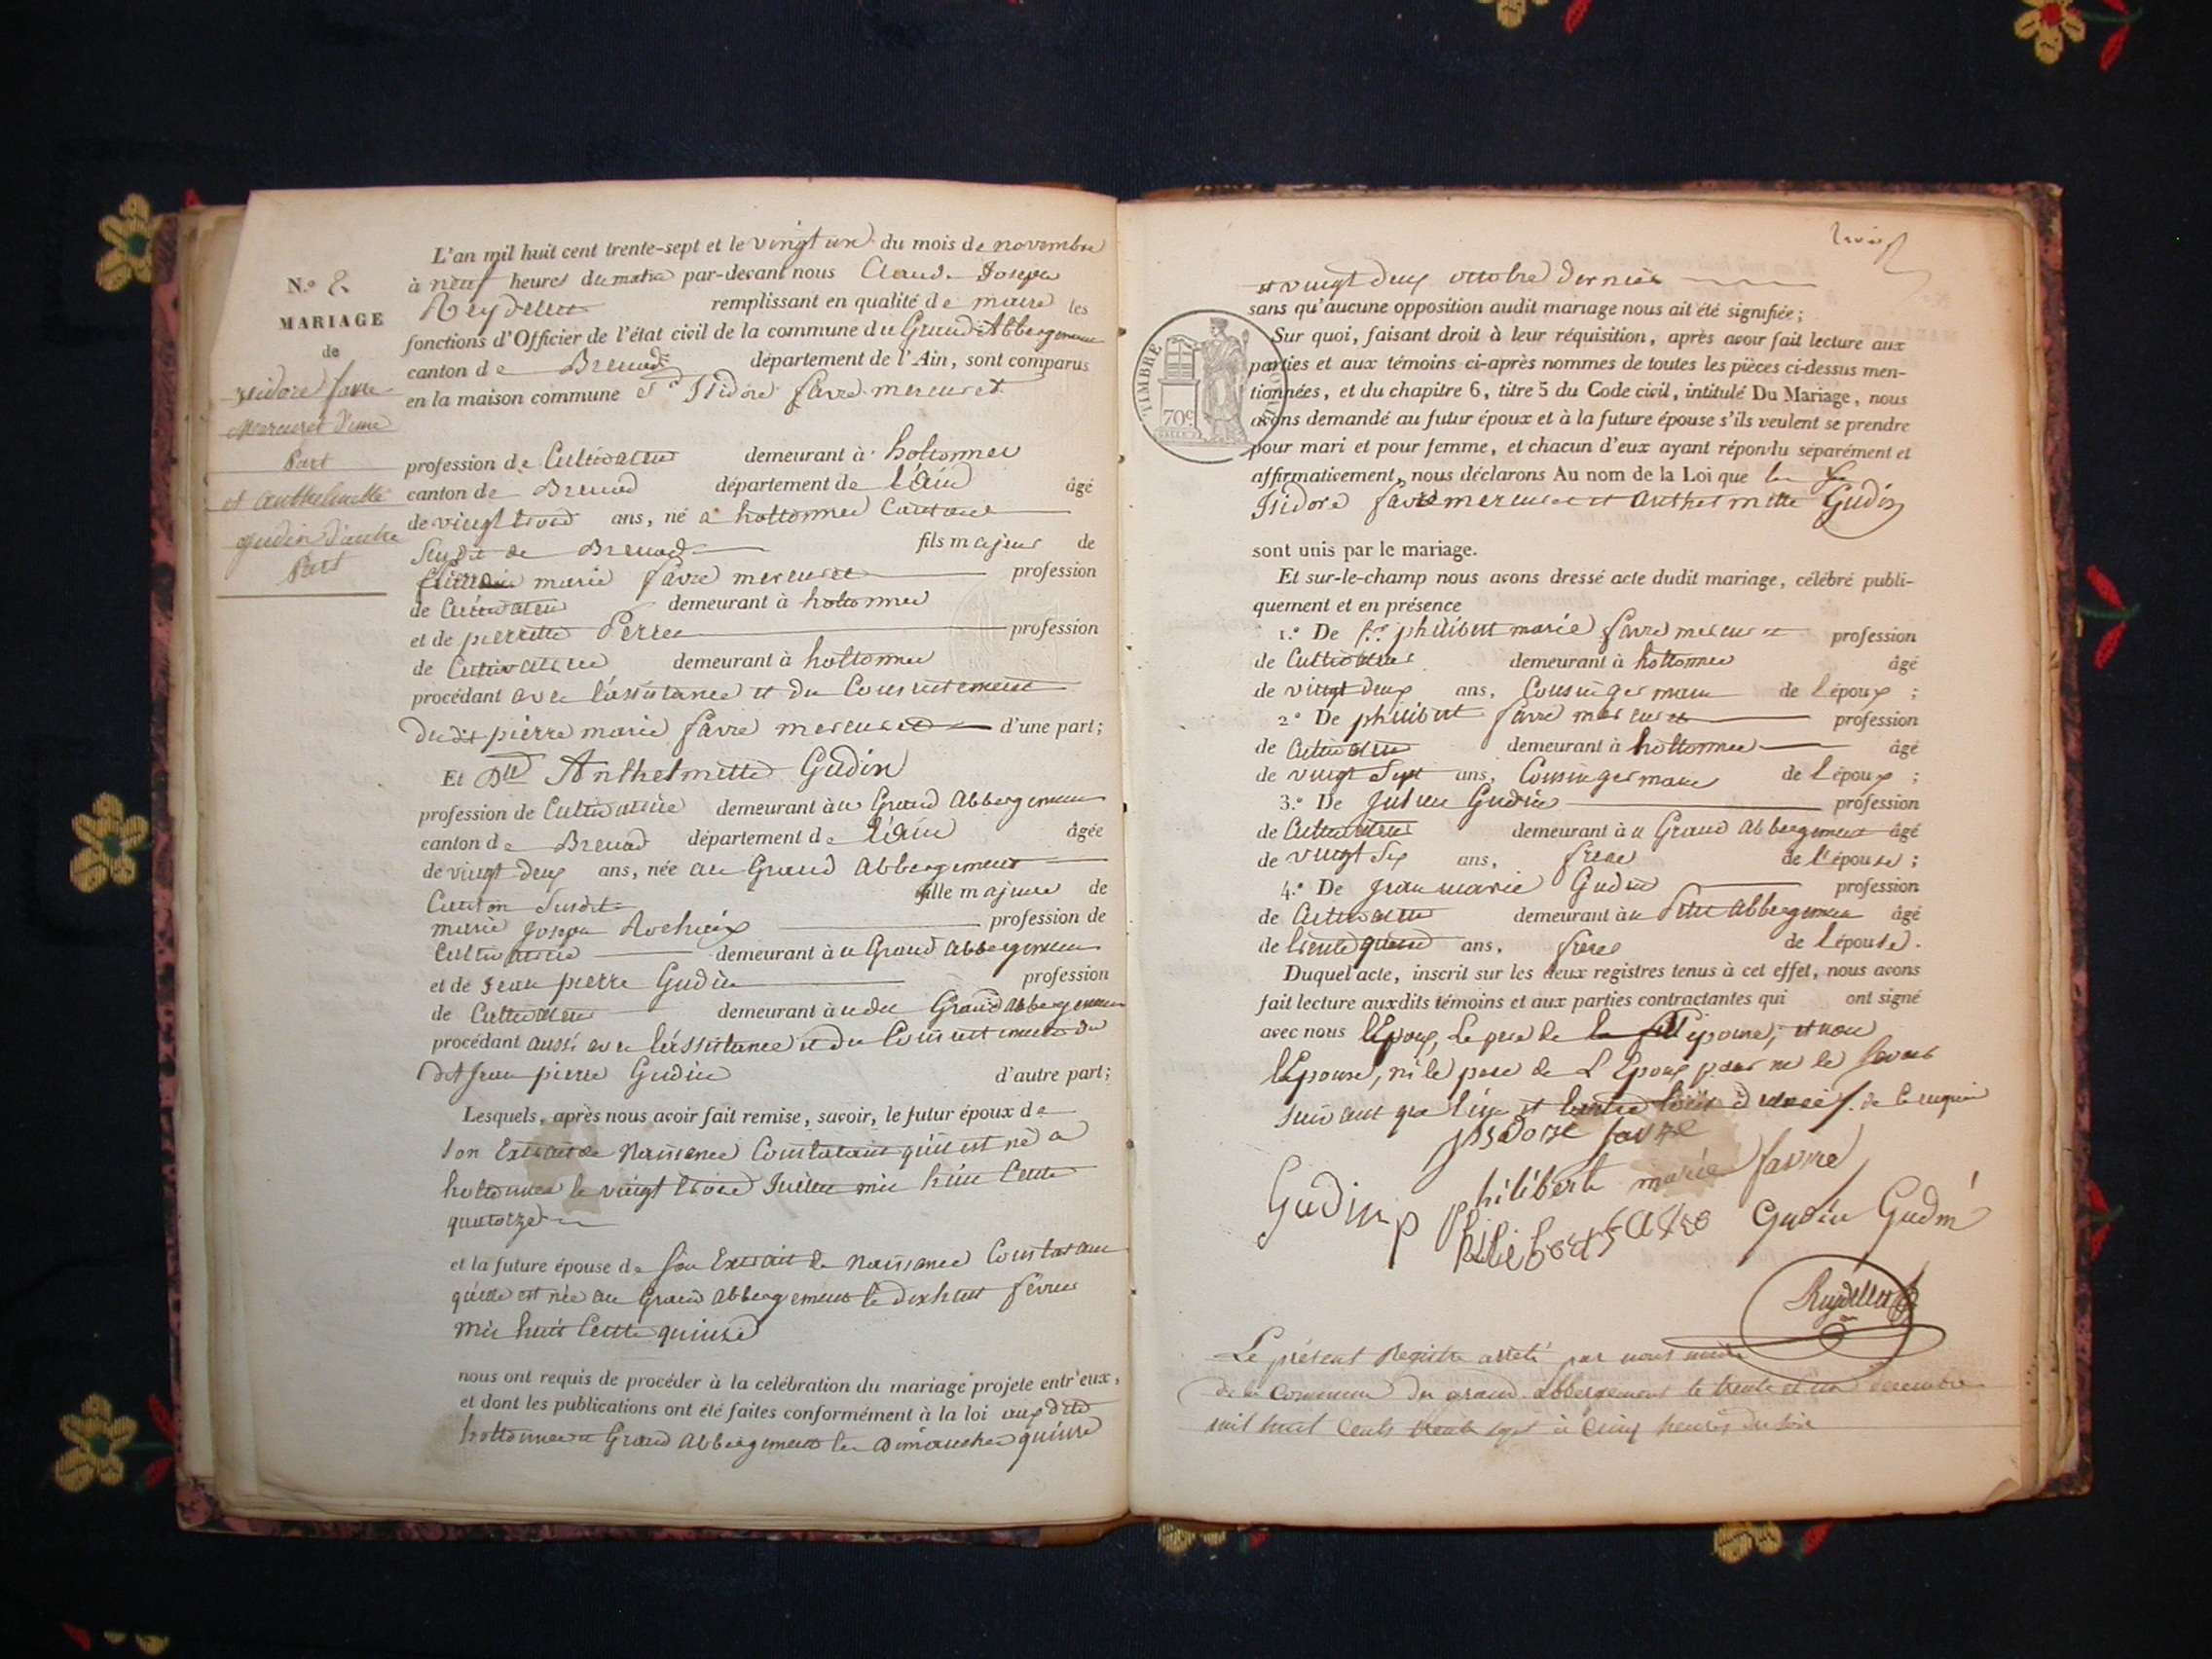 N.º 8
MARIAGE
de
isidore favre
Mercuret d'une
Part
et anthelmette
gudin d'autre
Part
L'an mil huit cent trente-sept et le vingt un du mois de novembre
à neuf heures du matin par-devant nous Claude Joseph
Reydellet remplissant en qualité de maire les
fonctions d'Officier de l'état civil de la commune du Grand Abbergement
canton de Brenod département de l'Ain, sont comparus
en la maison commune Sr Isidore favre mercuret
profession de Cultivateur demeurant à hottonnes
canton de Brenod département de l'ain âgé
de vingt trois ans, né à hottonnes Canton
Susdit de Brenod fils majeur de
marie favre mercuret profession
de Cultivateur demeurant à hottonnes
et de pierrette Perret profession
de Cultivatrice demeurant à hottonnes
procédant avec l'assistance et du Consentement
dudit pierre marie favre mercuret d'une part;
Et Dlle Anthelmette Gudin
profession de Cultivatrice demeurant au Grand Abbergement
canton de Brenod département de l'ain âgée
de vingt deux ans, née au Grand Abbergement
Canton Susdit fille majeure de
marie Joseph Rochaix profession de
Cultivatrice demeurant au Grand Abbergement
et de jean pierre Gudin profession
de Cultivateur demeurant à udu Grand Abbergement
procédant aussi avec l'assistance et du Consentement du
dit jean pierre Gudin d'autre part;
Lesquels, après nous avoir fait remise, savoir, le futur époux de
son Extrait de Naissance Constatant qu'il est né a
hottonnes le vingt trois Juillet mil huit Cent
quatorze
et la future épouse de son Extrait de Naissance Constatant
qu'elle est née au Grand Abbergement le dix huit fevrier
mil huit Cent quinze
nous ont requis de procéder à la celébration du mariage projete entr'eux,
et dont les publications ont été faites conformément à la loi auxdits
hottonnes et Grand Abbergement les dimanches quinze
et vingt deux octobre dernier
sans qu'aucune opposition audit mariage nous ait été signifiée;
TIMBRE
70c
Sur quoi, faisant droit à leur réquisition, après avoir fait lecture aux
parties et aux témoins ci-après nommes de toutes les pièces ci-dessus men-
tionnées, et du chapitre 6, titre 5 du Code civil, intitulé Du Mariage, nous
avons demandé au futur époux et à la future épouse s'ils veulent se prendre
pour mari et pour femme, et chacun d'eux ayant répondu séparément et
affirmativement, nous déclarons Au nom de la Loi que
Isidore favre mercuret et Anthelmette Gudin
sont unis par le mariage.
Et sur-le-champ nous avons dressé acte dudit mariage, célébré publi-
quement et en présence
1.º De Sr philibert marie favre mercuret profession
de Cultivateur demeurant à hottonnes âgé
de vingt deux ans, Cousin germain de l'époux;
2º De philibert favre mercuret profession
de Cultivateur demeurant à hottonnes âgé
de vingt Sept ans, Cousin germain de l'époux;
3.º De Julien Gudin profession
de Cultivateur demeurant à u Grand Abbergement âgé
de vingt Six ans, frere de l'épouse;
4.º De Jean marie Gudin profession
de Cultivateur demeurant à u Petit Abbergement âgé
de ans, frere de l'épouse.
Duquel acte, inscrit sur les deux registres tenus à cet effet, nous avons
fait lecture auxdits témoins et aux parties contractantes qui ont signé
avec nous l'époux, Le pere de l'épouse, et non
l'épouse, ni le pere de L'Epoux pour ne le Savoir
Suivant que de ce requis
isidore favre
Gudin p
Philibert marie favre
Philibert favre
Gudin
Gudin
Reydellet
Le présent Registre arrêté par nous maire
de la Commune du grand abbergement le trente et un décembre
mil huit cents trente sept à cinq heures du soir